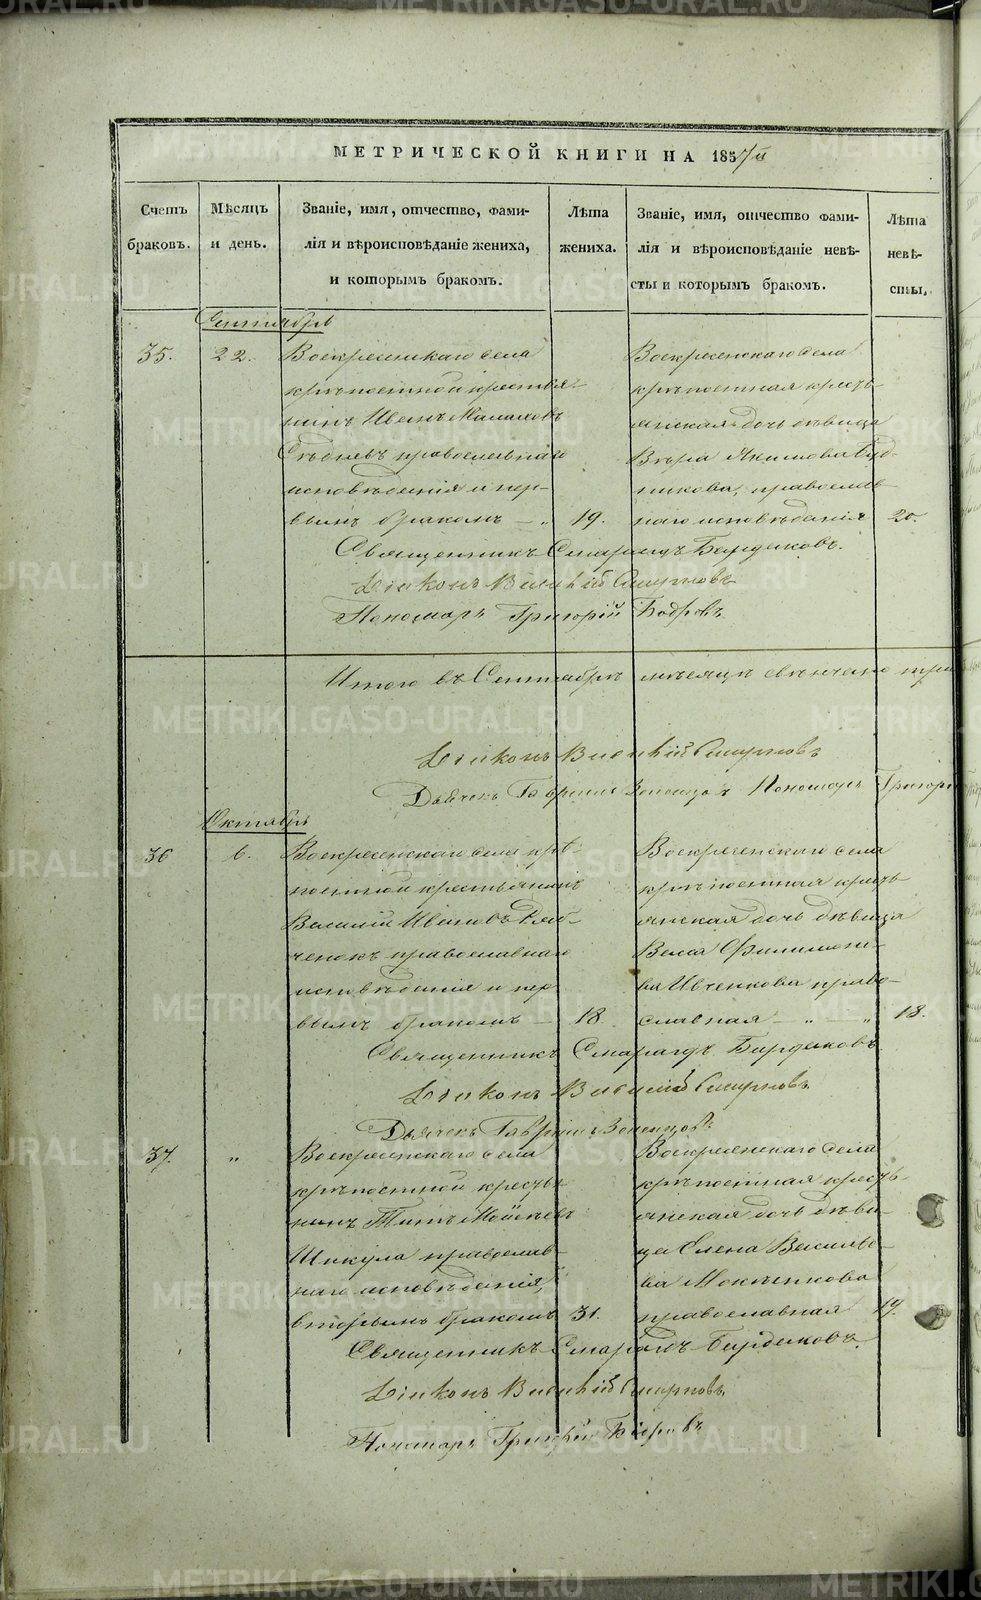 МЕТРИЧЕСКОЙ КНИГИ НА 1857й
Счетъ браковъ.
Мѣсяцъ и день.
Званіе, имя, отчество, фами-
лія и вѣроисповѣданіе жениха,
и которымъ бракомъ.
Лѣта
жениха.
Званіе, имя, отчество фами-
лія и вѣроисповѣданіе невѣ-
сты и которымъ бракомъ.
Лѣта
невѣ-
сты.
Сентябрь
35.
22.
Воскресенскаго села
крѣпостной крестья-
нинъ Иванъ
православнаго
исповѣданія и пер-
вымъ бракомъ — „
19.
Воскресенскаго села
крѣпостная кресть-
янская дочь дѣвица
Вѣра Якимова Буд-
никова, православ-
наго исповѣданія
20.
Священникъ Смарагдъ Бардаковъ.
Діаконъ Василій Смирновъ
Пономарь Григорій Бобровъ
Итого въ Сентябрѣ мѣсяцѣ вѣнчано три
Діаконъ Василій Смирновъ
Дьячекъ Гавріилъ Пономарь Григорій
Октябрь
36
6.
Воскресенскаго села крѣ-
постной крестьянинъ
Василій Ивановъ
православнаго
исповѣданія и пер-
вымъ бракомъ —
18
Воскресенскаго села
крѣпостная кресть-
янская дочь дѣвица
Васса Филимоно-
ва Ивченкова право-
славная — „ — „
18.
Священникъ Смарагдъ Бардаковъ
Діаконъ Василій Смирновъ
Дьячекъ Гавріилъ
37.
„
Воскресенскаго села
крѣпостной кресть-
нинъ Титъ Мойсеевъ
Шикула православ-
наго исповѣданія,
вторымъ бракомъ
31.
Воскресенскаго села
крѣпостная кресть-
янская дочь дѣви-
ца Елена Василье-
ва
православная
19.
Священникъ Смарагдъ Бардаковъ.
Діаконъ Василій Смирновъ
Пономарь Григорій Бобровъ
METRIKI.GASO-URAL.RU